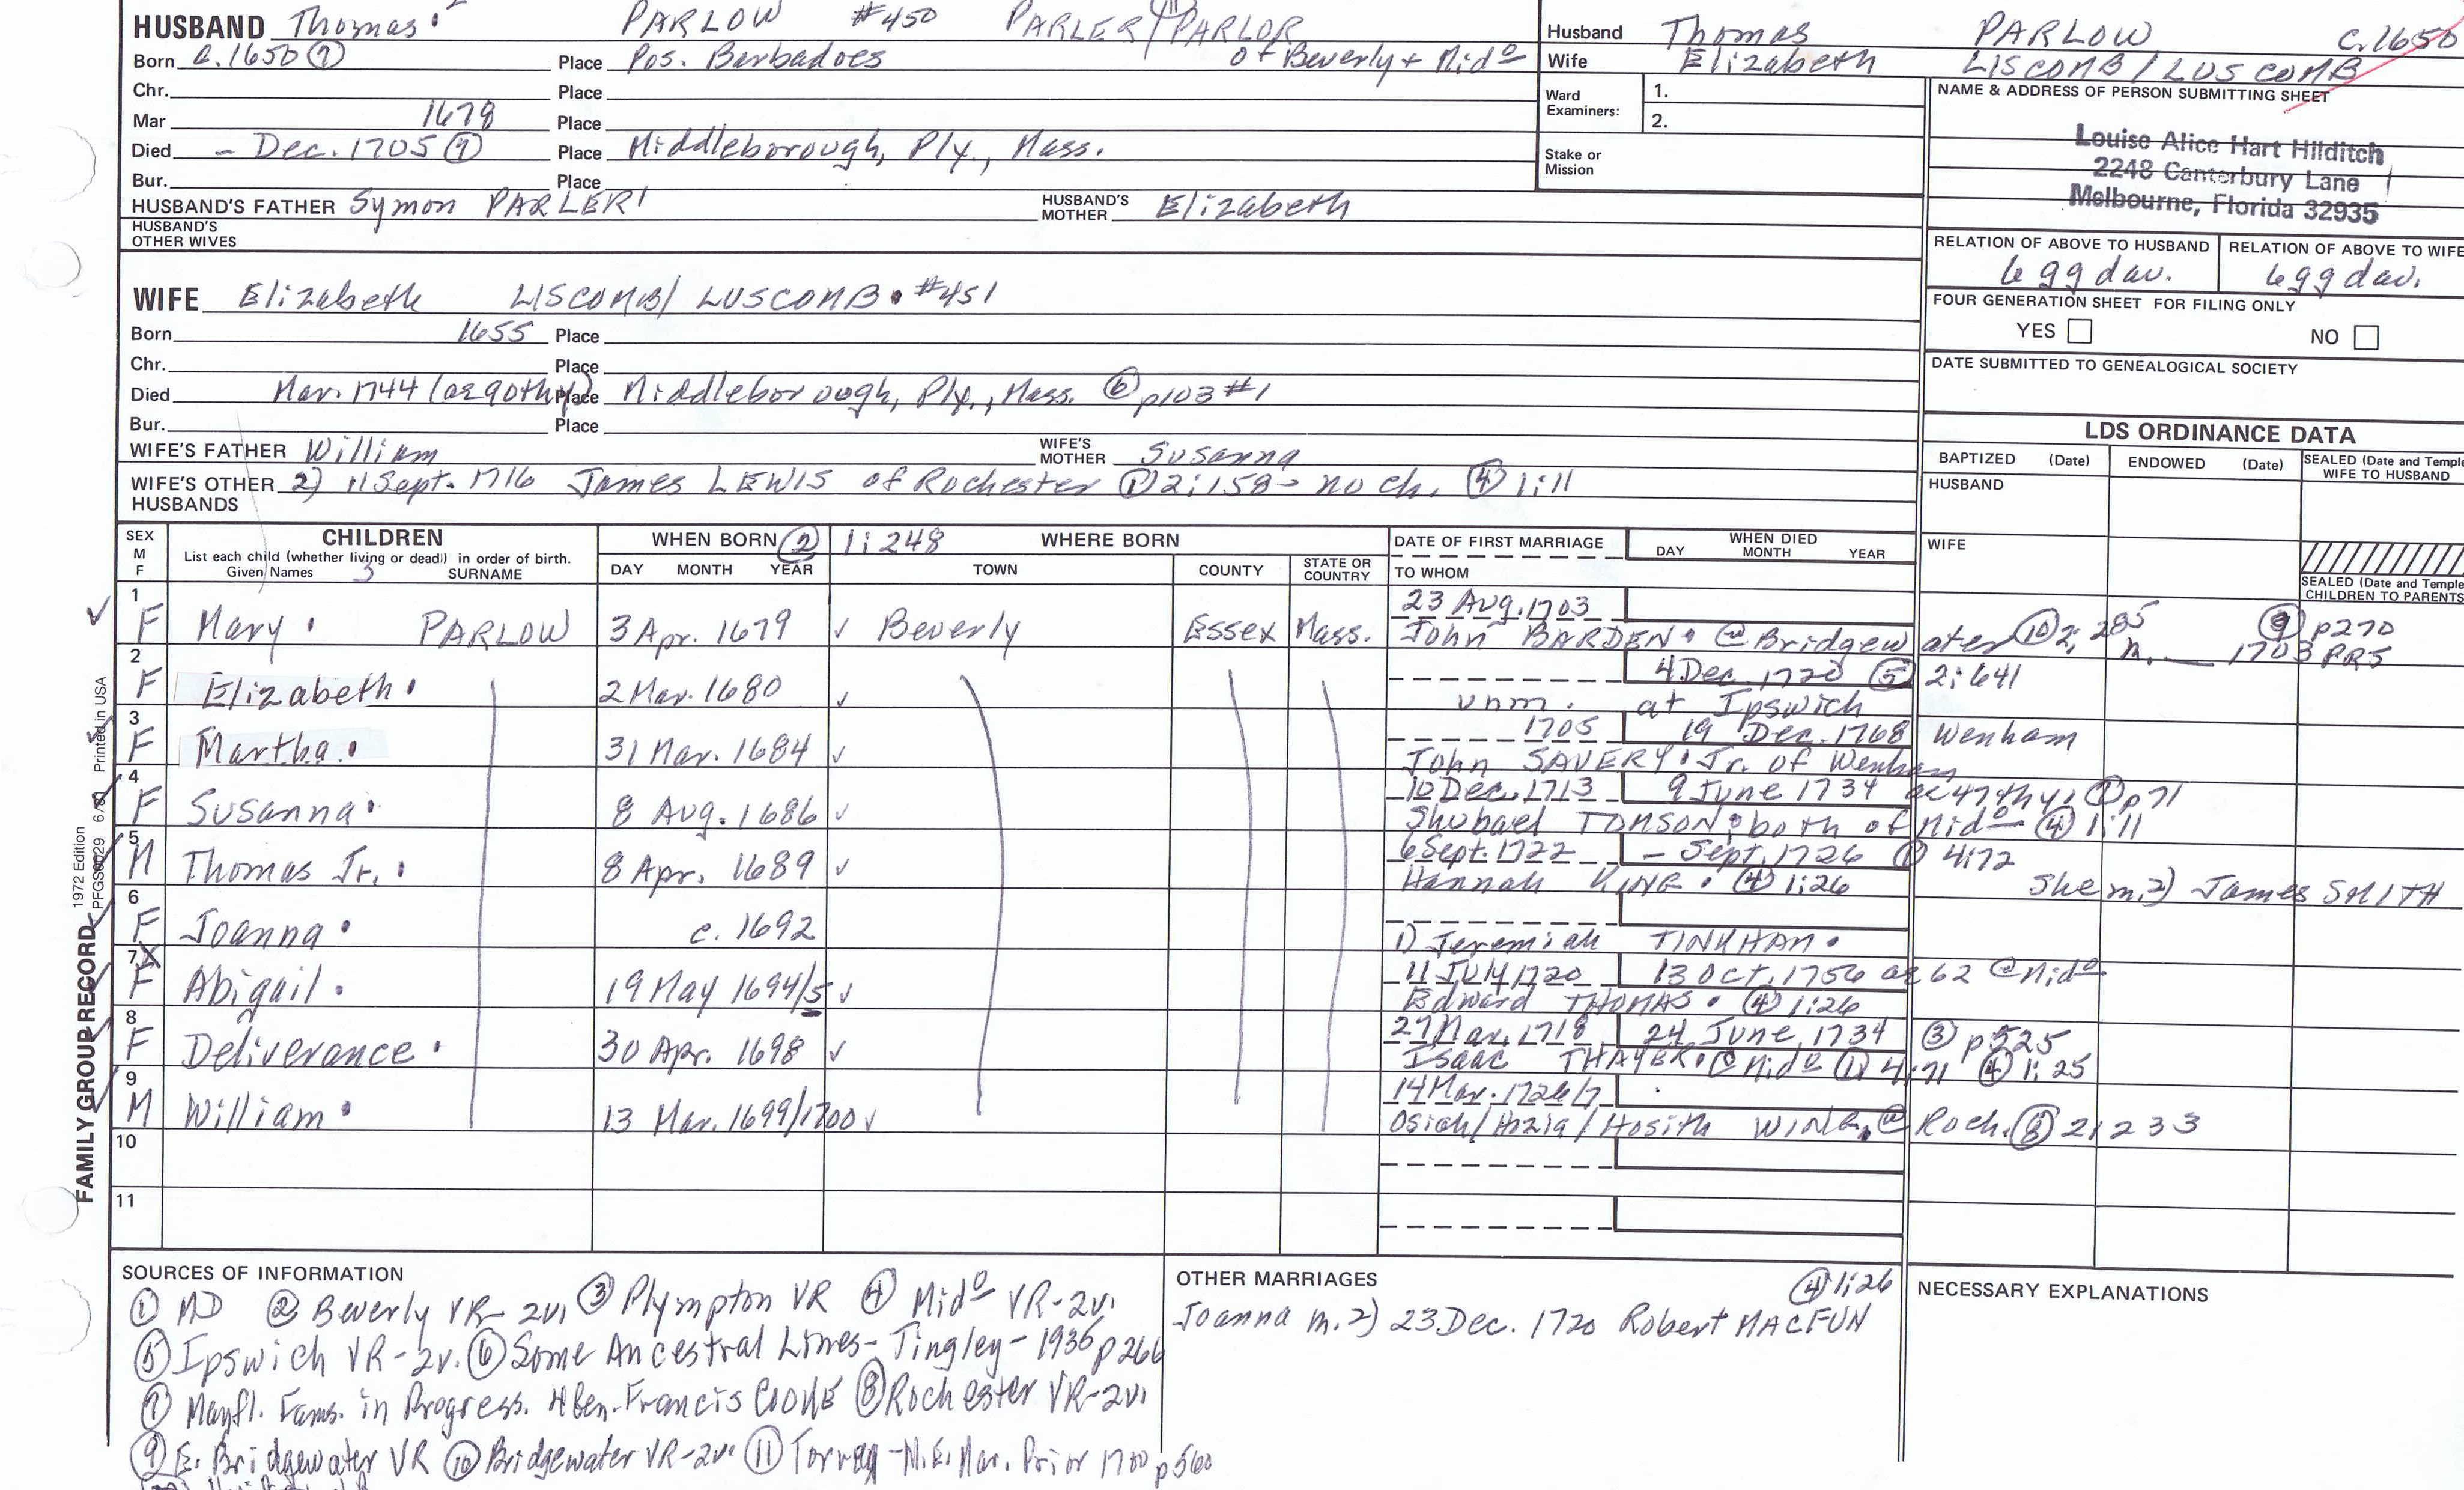 HUSBAND Thomas 2 PARLOW #450 PARLER/PARLOR
Born c.1650 (7) Place Pos. Barbadoes of Beverly + Mido
Chr. Place
Mar 1678 Place
Died - Dec. 1705 (7) Place Middleborough, Ply., Mass.
Bur. Place
HUSBAND'S FATHER Symon PARLER1 HUSBAND'S MOTHER Elizabeth
HUSBAND'S OTHER WIVES
WIFE Elizabeth LISCOMB/LUSCOMB. #451
Born 1655 Place
Chr. Place
Died Mar. 1744 (ae 90thy) Place Middleborough, Ply., Mass. (6) p103 #1
Bur. Place
WIFE'S FATHER William WIFE'S MOTHER Susanna
WIFE'S OTHER HUSBANDS 2) 11 Sept. 1716 James LEWIS of Rochester (1) 2:158 - no ch. (4) 1:11
Husband Thomas PARLOW c.1650
Wife Elizabeth LISCOMB/LUSCOMB
Ward Examiners: 1.
2.
Stake or Mission
NAME & ADDRESS OF PERSON SUBMITTING SHEET
Louise Alice Hart Hilditch
2248 Canterbury Lane
Melbourne, Florida 32935
RELATION OF ABOVE TO HUSBAND RELATION OF ABOVE TO WIFE
6 gg dau. 6 gg dau.
FOUR GENERATION SHEET FOR FILING ONLY
YES NO
DATE SUBMITTED TO GENEALOGICAL SOCIETY
LDS ORDINANCE DATA
BAPTIZED (Date) ENDOWED (Date) SEALED (Date and Temple) WIFE TO HUSBAND
HUSBAND
WIFE
SEALED (Date and Temple) CHILDREN TO PARENTS
SEX M F
CHILDREN
List each child (whether living or dead) in order of birth.
Given Names 3 SURNAME
WHEN BORN (2) 1:248 WHERE BORN
DAY MONTH YEAR TOWN COUNTY STATE OR COUNTRY
DATE OF FIRST MARRIAGE
TO WHOM
WHEN DIED
DAY MONTH YEAR
1 F Mary. PARLOW 3 Apr. 1679 ✓ Beverly Essex Mass. 23 Aug. 1703
John BARDEN. @ Bridgewater (10) 2:285 (9) p270
m. __ 1703 PR5
2 F Elizabeth. 2 Mar. 1680 ✓ 4 Dec. 1720 (5) 2:641
unm. at Ipswich
3 F Martha. 31 Mar. 1684 ✓ 1705 19 Dec. 1768 Wenham
John SAVERY. Jr. of Wenham
4 F Susanna. 8 Aug. 1686 ✓ 10 Dec. 1713 9 June 1734 ae 47thy, (1) p71
Shubael TOMSON. both of Mido (4) 1:11
5 M Thomas Jr. . 8 Apr. 1689 ✓ 6 Sept. 1722 - Sept. 1726 (1) 4:72
Hannah KING. (4) 1:26 She m. 2) James SMITH
6 F Joanna. c. 1692
1) Jeremiah TINKHAM.
7 X F Abigail. 19 May 1694/5 ✓ 11 July 1720 13 Oct. 1756 ae 62 @ Mido
Edward THOMAS. (4) 1:26
8 F Deliverance. 30 Apr. 1698 ✓ 27 Mar. 1718 24 June 1734 (3) p525
Isaac THAYER. @ Mido (1) 4:71 (4) 1:25
9 M William. 13 Mar. 1699/1700 ✓ 14 Mar. 1726/7
Osiah/Hozia/Hosith WING. @ Roch. (8) 2:233
10
11
FAMILY GROUP RECORD
1972 Edition
PFGS0029 6/81 Printed in USA
SOURCES OF INFORMATION
(1) MD (2) Beverly VR-2v. (3) Plympton VR (4) Mido VR-2v.
(5) Ipswich VR-2v. (6) Some Ancestral Lines - Tingley - 1935 p266
(7) Mayfl. Fams. in Progress. Francis COOKE (8) Rochester VR-2v.
(9) E. Bridgewater VR (10) Bridgewater VR-2v. (11) Torrey - N.E. Mar. Prior 1700 p560
OTHER MARRIAGES (4) 1:26
Joanna m. 2) 23 Dec. 1720 Robert MACFUN
NECESSARY EXPLANATIONS